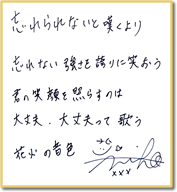 忘れられないと嘆くより
忘れない強さを誇りに笑おう
君の笑顔を照らすのは
大丈夫、大丈夫って歌う
花火の音色
xxx